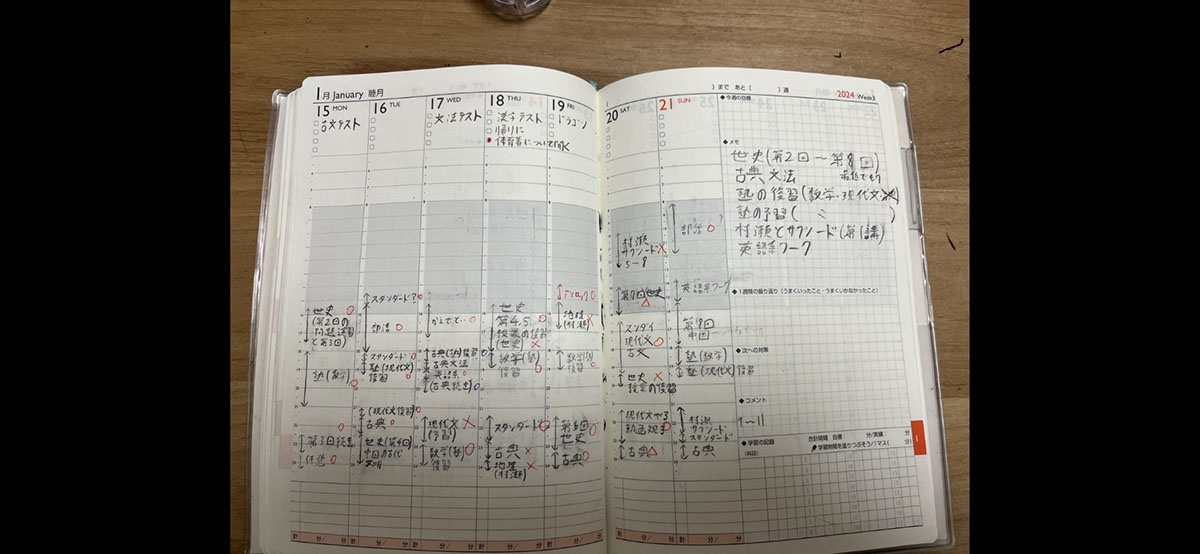 1月 January 睦月
15 MON
古文テスト
16 TUE
17 WED
文法テスト
18 THU
漢字テスト
帰りに
体育着について聞く
19 FRI
ドラゴン
20 SAT
21 SUN
)まで あと( )週
2024 Week3
世史
(第2回の
問題演習
と第3回)
塾(数学)
第3回続き
スタンダード?
部活
スタンダード
塾(現代文)
復習
(現代文復習)
古典
世史(第4回)
中国古代
文明
かえでと…
古典(塾)復習
古典文法
英語系
(古典続き)
現代文
(予習)
数学(塾)
復習
世史
第4,5
授業の復習
(世史)
数学(塾)
復習
スタンダード
古典
地理
(村瀬)
地理
(村瀬)
数学(塾)
復習
第6回
世史
古典
村瀬
サクシード
5〜8
第7回世史
スンダイ
現代文
古文
世史
授業の復習
現代文やる
動画観る
古典
部活
英語系ワーク
第8回
中国
塾(数学)
塾(現代文)復習
村瀬
サクシード
スタンダード
古典
◆今週の目標
◆メモ
世史(第2回〜第8回)
古典文法
塾の復習(数学・現代文)
塾の予習( )
村瀬とサクシード(第1講)
英語系ワーク
◆1週間の振り返り(うまくいったこと・うまくいかなかったこと)
◆次への対策
◆コメント
1〜11
◆学習の記録
合計時間 目標 分/実績: 分)
(科目)
学習時間を塗りつぶそう/1マス( 分)
1
計 分/ 分
計 分/ 分
計 分/ 分
計 分/ 分
計 分/ 分
計 分/ 分
計 分/ 分